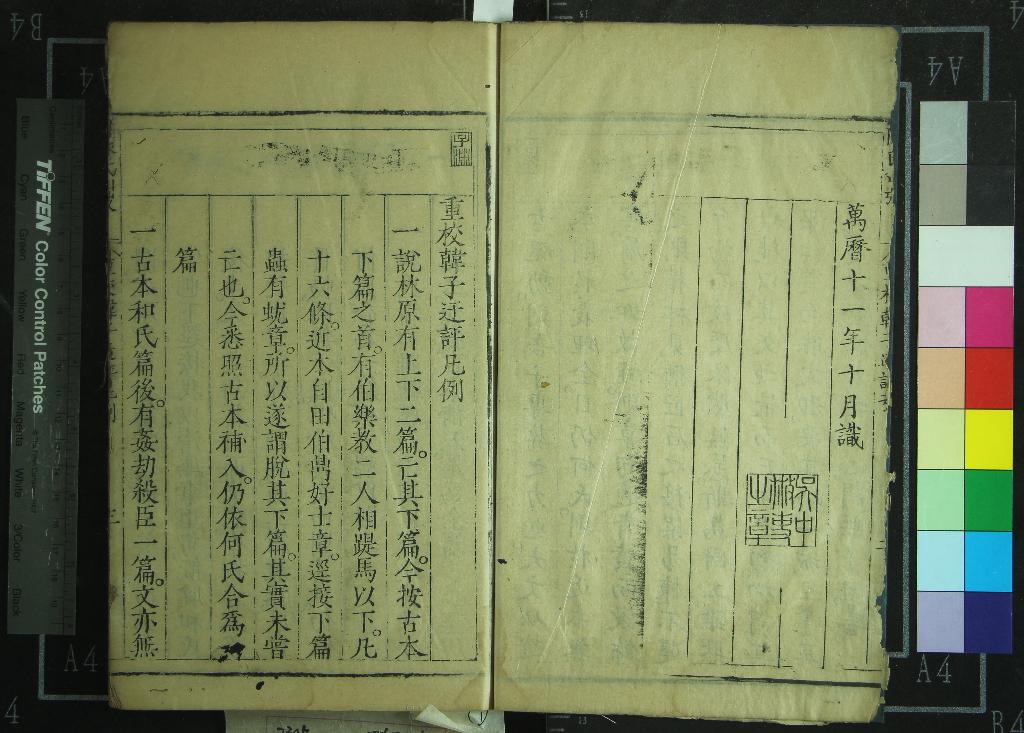 萬曆十一年十月識
重校韓子迂評凡例
一說林原有上下二篇。亡其下篇。今按古本
下篇之首。有伯樂教二人相踶馬以下。凡
十六條。近本自田伯鼎好士章。逕接下篇
蟲有蚘章。所以遂謂脫其下篇。其實未嘗
亡也。今悉照古本補入。仍依何氏合爲一
篇
一古本和氏篇後。有姦劫殺臣一篇。文亦無
TIFFEN Color Control Patches
Blue
Cyan
Green
Yellow
Red
Magenta
White
3/Color
Black
A4
A4
A4
A4
B4
B4
4
4